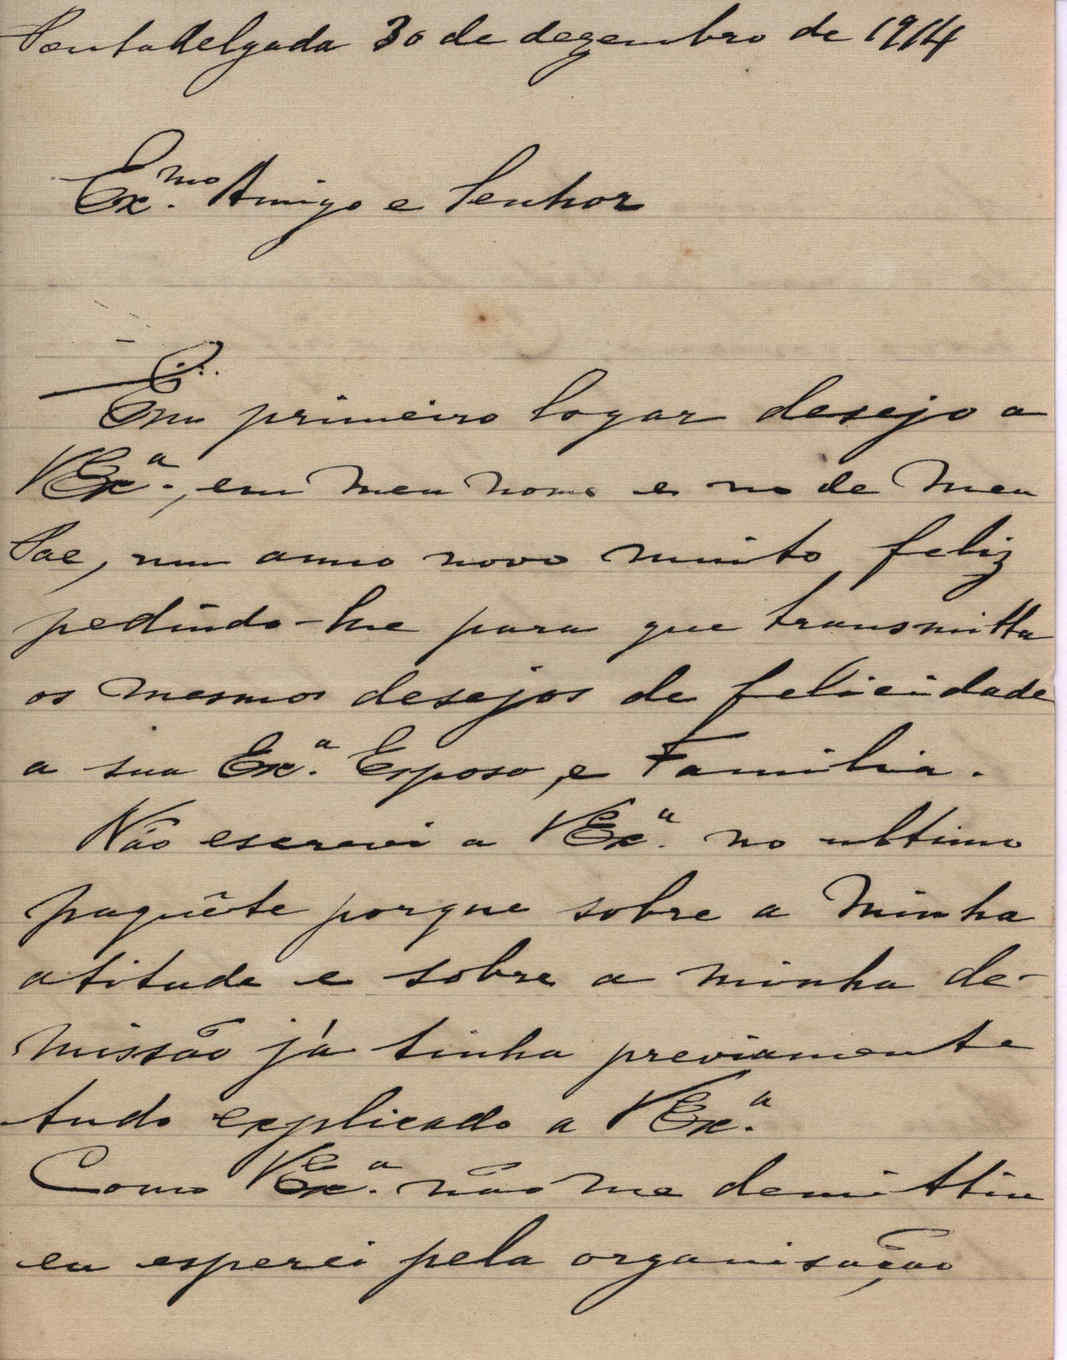 Pontadelgada 30 de dezembro de 1914
Ex.mo Amigo e Senhor
Em primeiro logar desejo a
VEx.a, em meu nome e no de meu
Pae, um anno novo muito feliz
pedindo-lhe para que transmitta
os mesmos desejos de felicidade
a sua Ex.a Esposo, e Familia.
Não escrevi a VEx.a no ultimo
paquête porque sobre a minha
atitude e sobre a minha de-
missão já tinha previamente
tudo explicado a VEx.a
Como VEx.a não me demittiu
eu esperei pela organisação